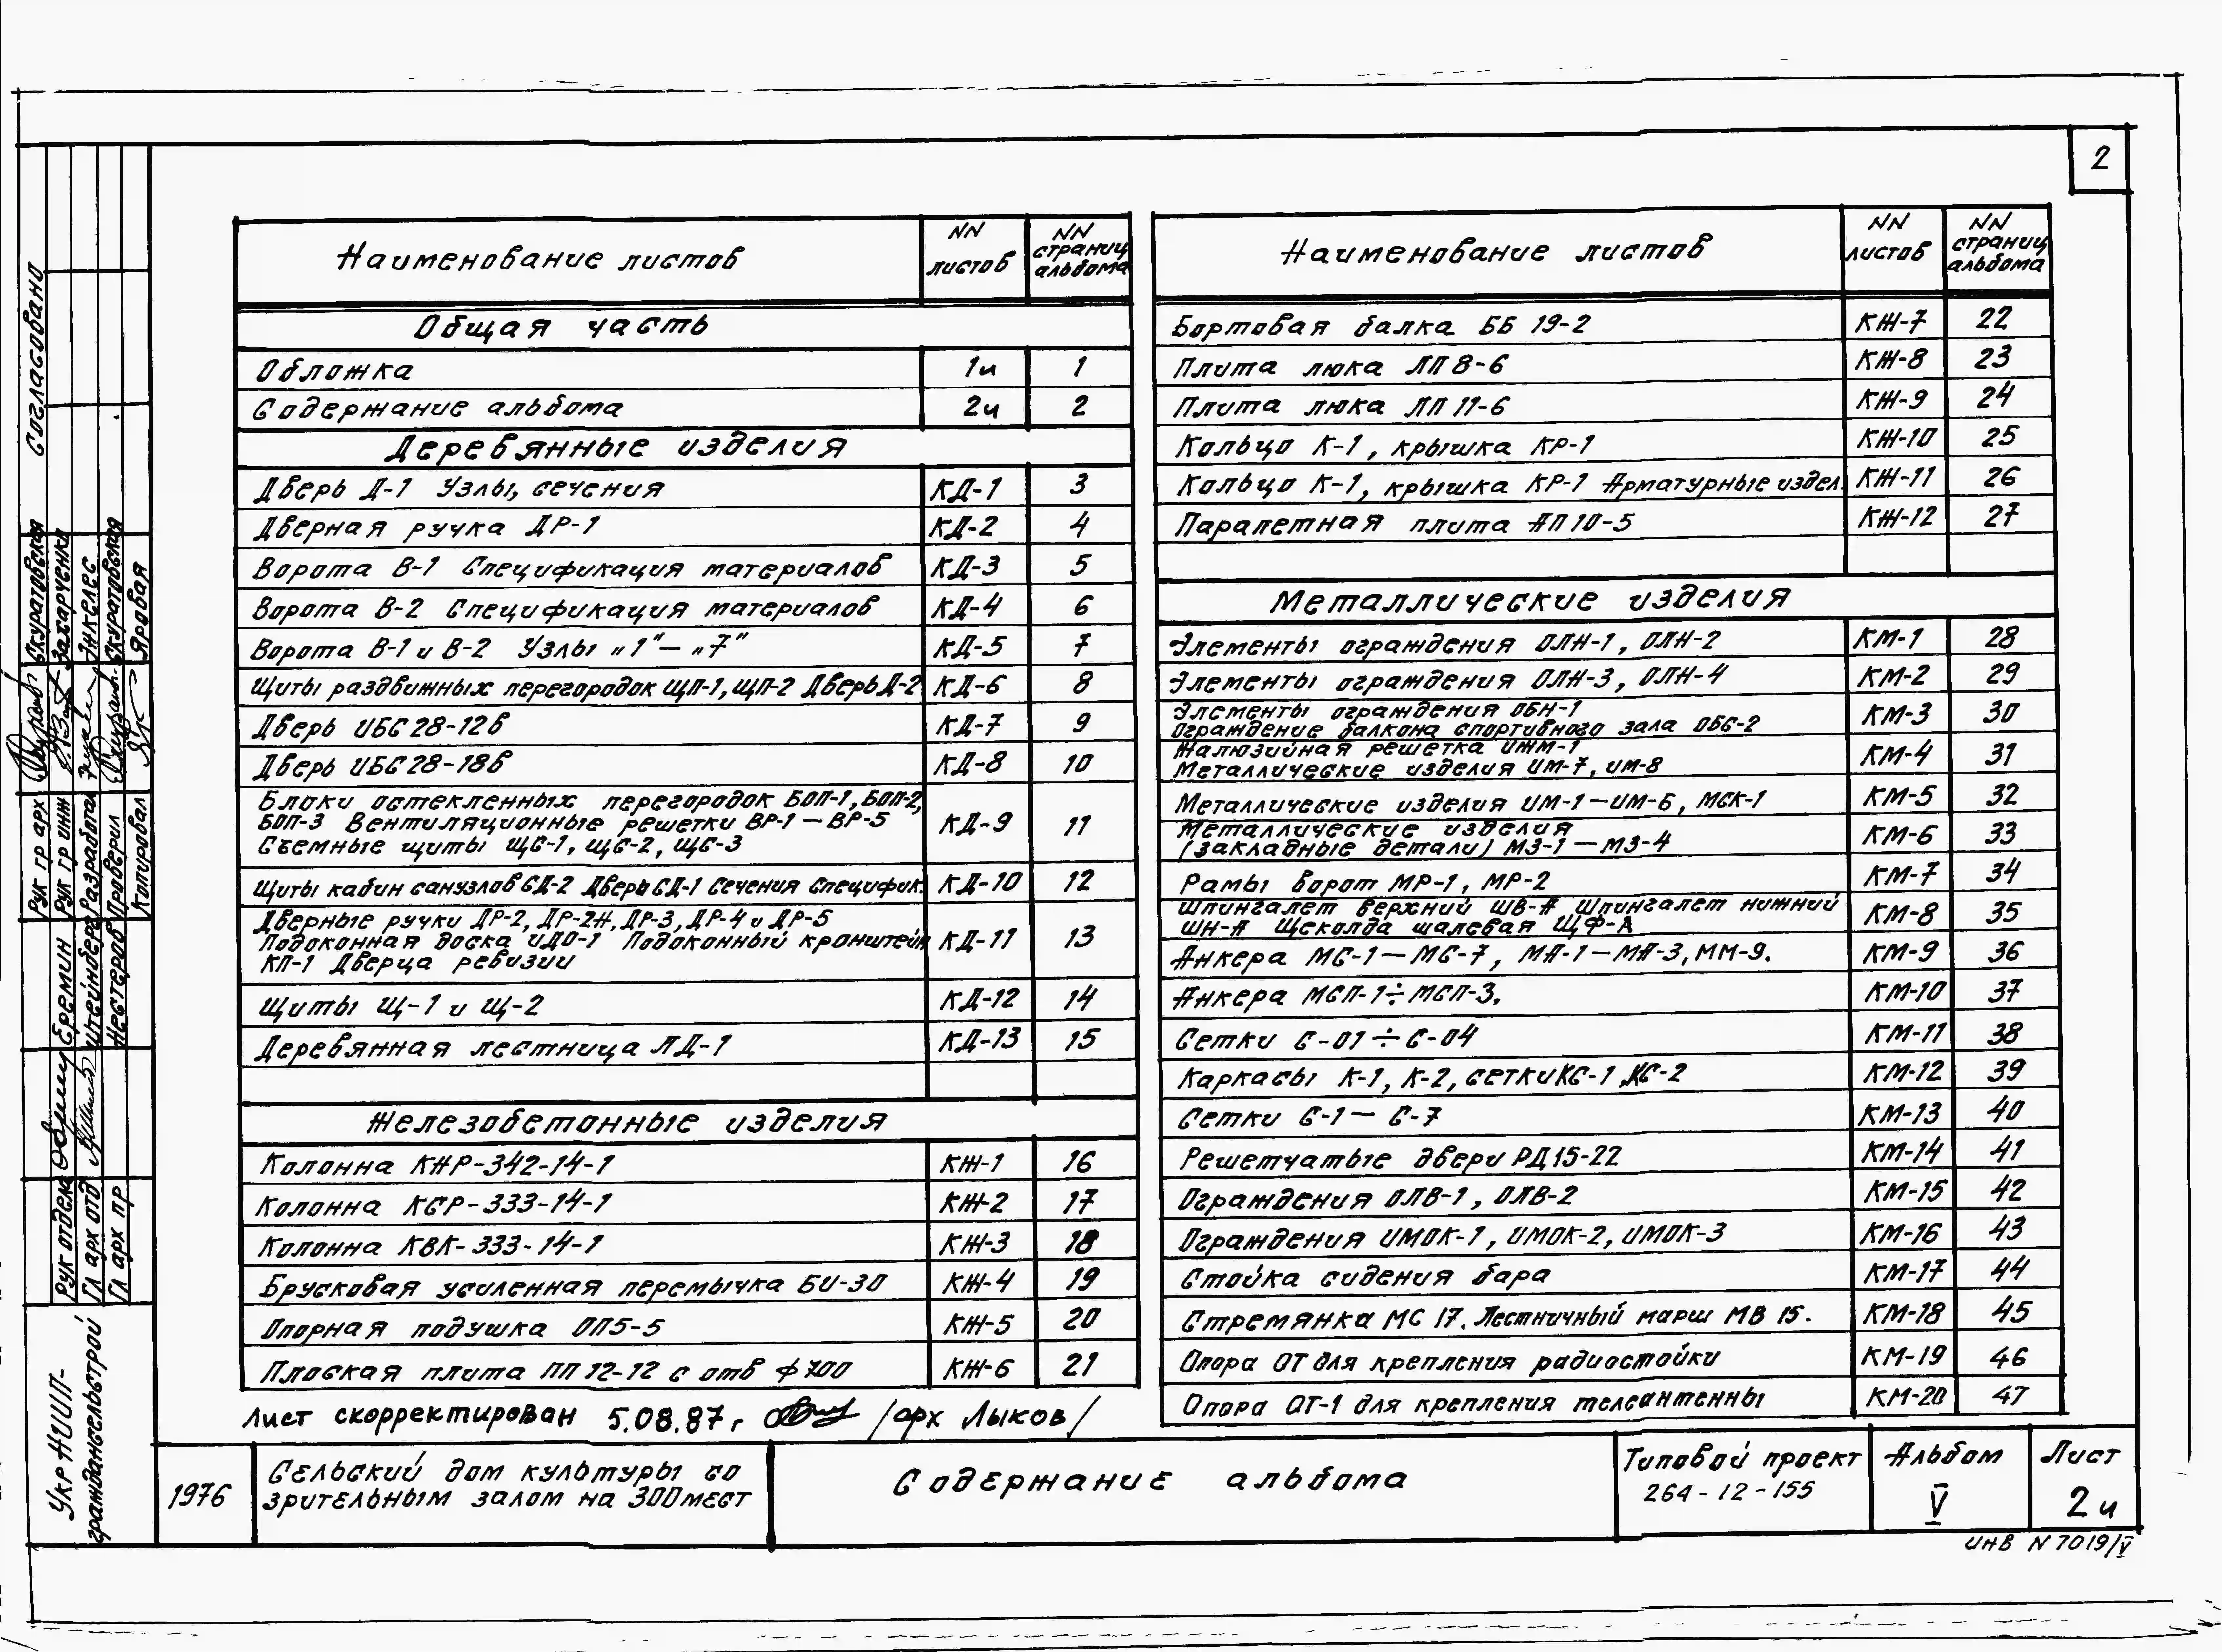 2
Наименование листов
NN листов
NN страниц альбома
Общая часть
Обложка 1и 1
Содержание альбома 2и 2
Деревянные изделия
Дверь Д-1 Узлы, сечения КД-1 3
Дверная ручка ДР-1 КД-2 4
Ворота В-1 Спецификация материалов КД-3 5
Ворота В-2 Спецификация материалов КД-4 6
Ворота В-1 и В-2 Узлы „1"— „7" КД-5 7
Щиты раздвижных перегородок ЩП-1, ЩП-2 Дверь Д-2 КД-6 8
Дверь ИБС 28-12в КД-7 9
Дверь ИБС 28-18в КД-8 10
Блоки остекленных перегородок БОП-1, БОП-2,
БОП-3 Вентиляционные решетки ВР-1 — ВР-5 КД-9 11
Съемные щиты ЩС-1, ЩС-2, ЩС-3
Щиты кабин санузлов СД-2 Дверь СД-1 Сечения Специфик. КД-10 12
Дверные ручки ДР-2, ДР-2А, ДР-3, ДР-4 и ДР-5
Подоконная доска ИДО-1 Подоконный кронштейн КД-11 13
КП-1 Дверца ревизии
Щиты Щ-1 и Щ-2 КД-12 14
Деревянная лестница ЛД-1 КД-13 15
Железобетонные изделия
Колонна КНР-342-14-1 КЖ-1 16
Колонна КСР-333-14-1 КЖ-2 17
Колонна КВК-333-14-1 КЖ-3 18
Брусковая усиленная перемычка БИ-30 КЖ-4 19
Опорная подушка ОП5-5 КЖ-5 20
Плоская плита ПП 12-12 с отв ф 700 КЖ-6 21
Лист скорректирован 5.08.87г /арх Лыков/
Наименование листов
NN листов
NN страниц альбома
Бортовая балка ББ 19-2 КЖ-7 22
Плита люка ЛП 8-6 КЖ-8 23
Плита люка ЛП 11-6 КЖ-9 24
Кольцо К-1, крышка КР-1 КЖ-10 25
Кольцо К-1, крышка КР-1 Арматурные издел. КЖ-11 26
Парапетная плита АП 10-5 КЖ-12 27
Металлические изделия
Элементы ограждения ОЛН-1, ОЛН-2 КМ-1 28
Элементы ограждения ОЛН-3, ОЛН-4 КМ-2 29
Элементы ограждения ОБН-1
Ограждение балкона спортивного зала ОБС-2 КМ-3 30
Жалюзийная решетка ИЖМ-1
Металлические изделия ИМ-7, ИМ-8 КМ-4 31
Металлические изделия ИМ-1 — ИМ-6, МСК-1 КМ-5 32
Металлические изделия
(закладные детали) МЗ-1 — МЗ-4 КМ-6 33
Рамы ворот МР-1, МР-2 КМ-7 34
Шпингалет верхний ШВ-А Шпингалет нижний
ШН-А Щеколда шалевая ЩФ-А КМ-8 35
Анкера МС-1 — МС-7, МА-1 — МА-3, ММ-9. КМ-9 36
Анкера МСП-1÷МСП-3, КМ-10 37
Сетки С-01 ÷ С-04 КМ-11 38
Каркасы К-1, К-2, сетки КС-1, КС-2 КМ-12 39
Сетки С-1 — С-7 КМ-13 40
Решетчатые двери РД 15-22 КМ-14 41
Ограждения ОЛВ-1, ОЛВ-2 КМ-15 42
Ограждения ИМОК-1, ИМОК-2, ИМОК-3 КМ-16 43
Стойка сидения бара КМ-17 44
Стремянка МС 17. Лестничный марш МВ 15. КМ-18 45
Опора ОТ для крепления радиостойки КМ-19 46
Опора ОТ-1 для крепления телеантенны КМ-20 47
Согласовано
Рук гр арх Скуратовская
Рук гр инж Захарченко
Разработал Инкелес
Проверил Скуратовская
Копировал Яровая
Рук отдела Еремин
Гл арх отд Штейнберг
Гл арх пр Нестеров
УкрНИИП-
граждансельстрой
1976
Сельский дом культуры со
зрительным залом на 300 мест
Содержание альбома
Типовой проект
264-12-155
Альбом
V
Лист
2и
ИНВ N 7019/V